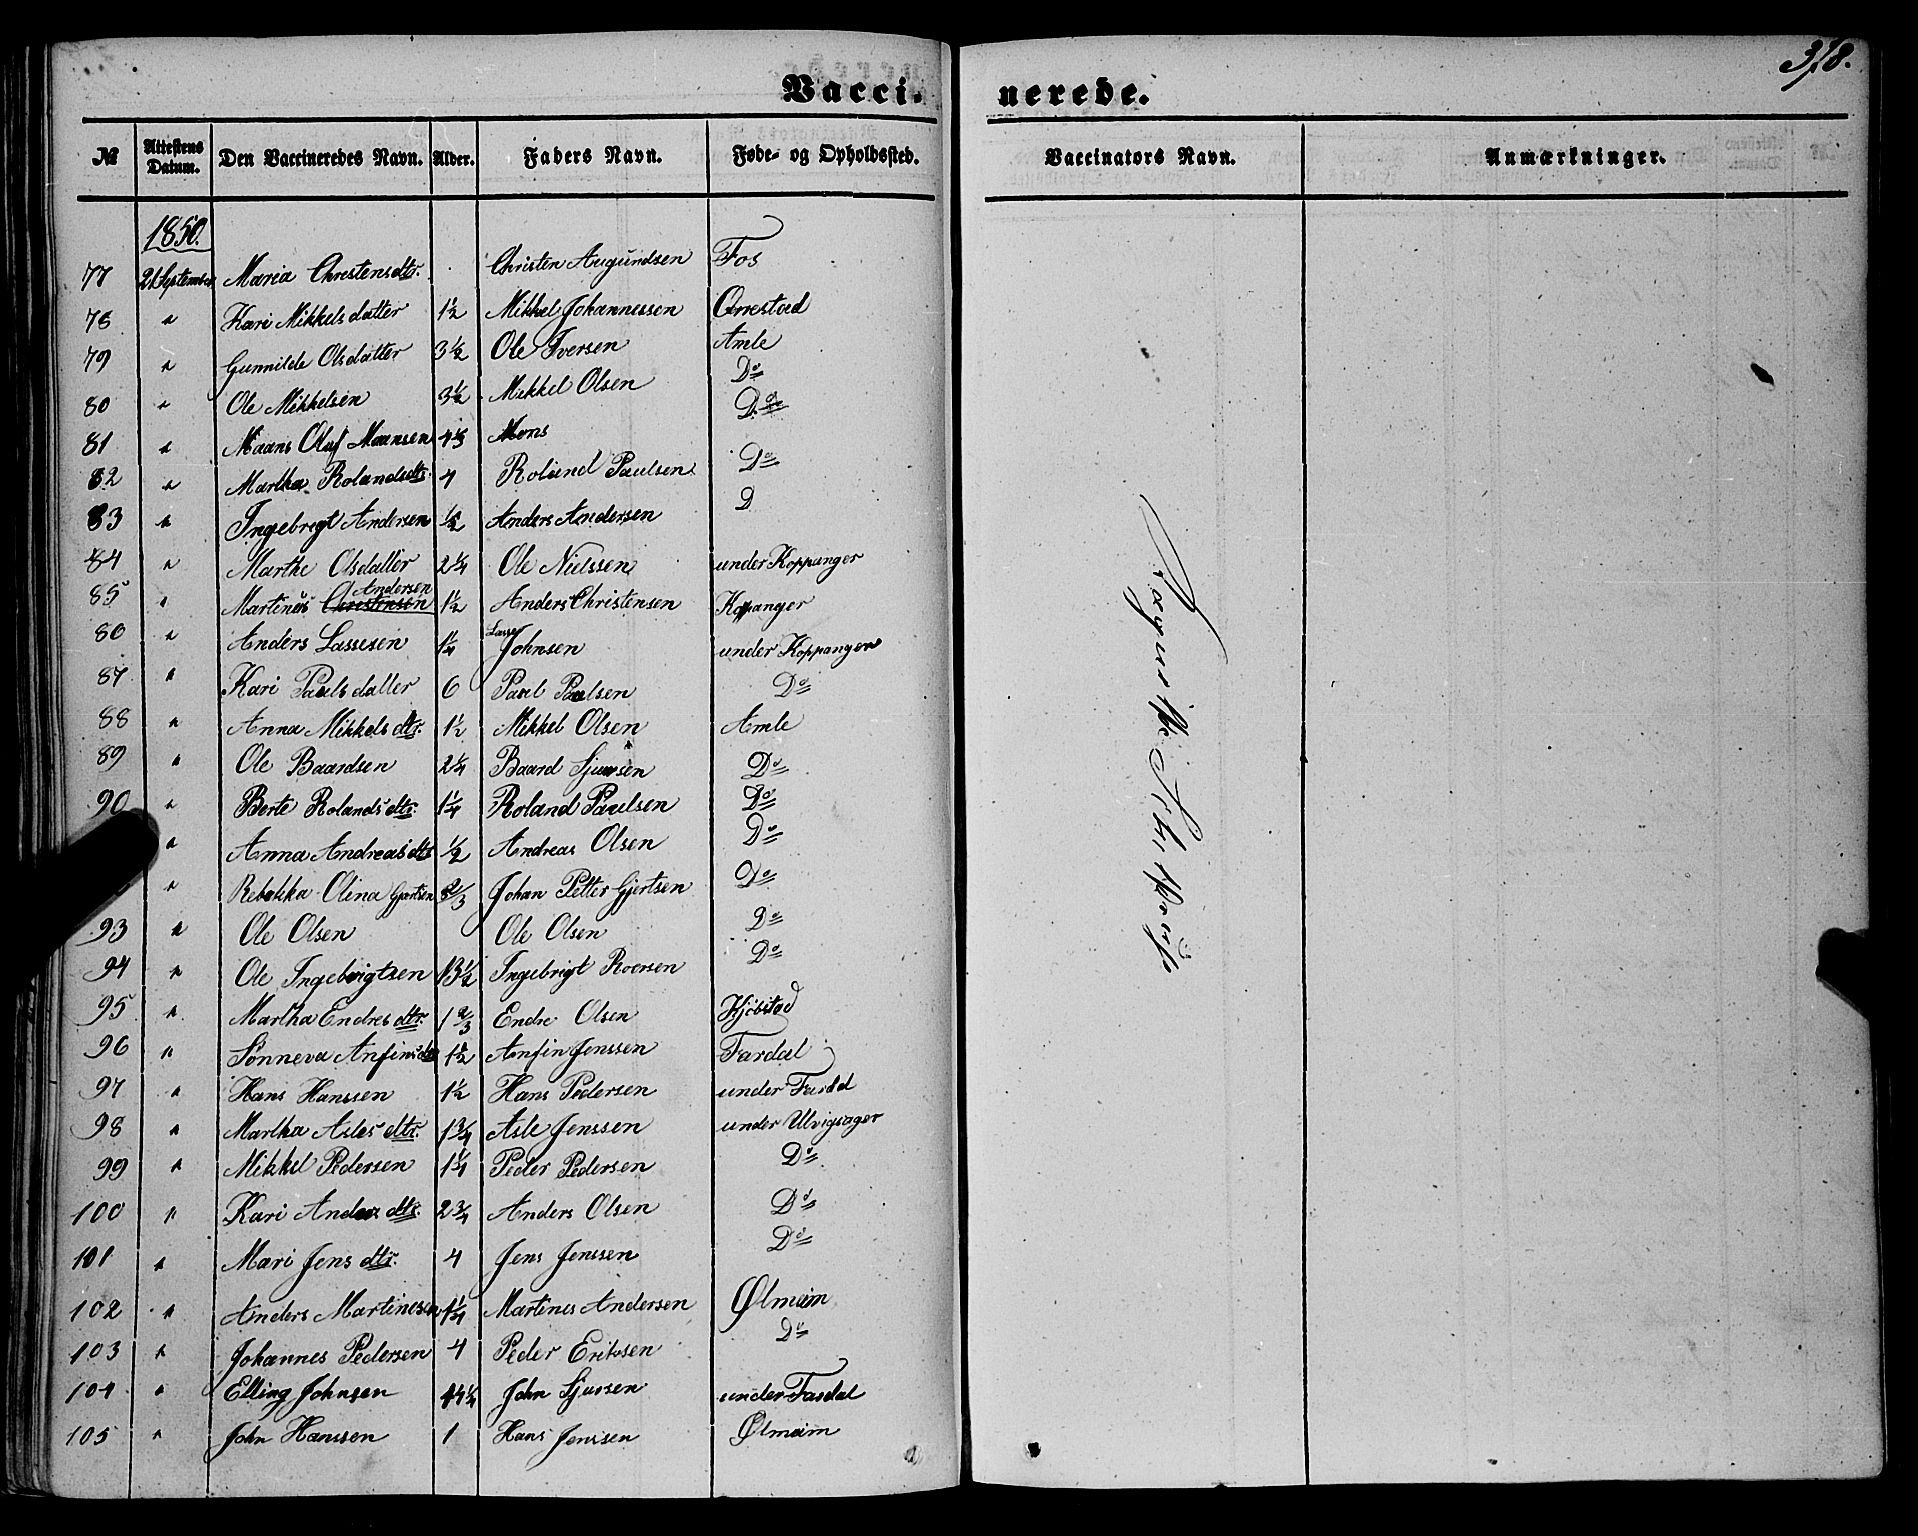 378.
Vacci- nerede.
№ Attestens Datum. Den Vaccineredes Navn. Alder. Faders Navn. Føde- og Opholdssted. Vaccinators Navn. Anmærkninger.
1850.
77 21 September Maria Christensdtr. Christen Augundsen Fos
78 " Kari Mikkelsdatter 1½ Mikkel Johannessen Orrestad
79 " Gunnilde Olsdatter 3½ Ole Iversen Amle
80 " Ole Mikkelsen 3½ Mikkel Olsen Do
81 " Maans Oluf Maansen Mons Do
82 " Martha Rolandsdtr. 4 Roland Paulsen Do
83 " Ingebregt Andersen ½ Anders Andersen D
84 " Marthe Olsdatter 2¼ Ole Nielssen under Koppanger
85 " Martinus Christensen Andersen 1½ Anders Christensen Koppanger
86 " Anders Lassesen 1¼ Lasse Johnsen under Koppanger
87 " Kari Paulsdatter 6 Paul Paulsen Do
88 " Anna Mikkelsdtr. 1½ Mikkel Olsen Amle
89 " Ole Baardsen 2¼ Baard Sjursen Do
90 " Berte Rolandsdtr. 1¼ Roland Paulsen Do
" Anna Andreasdtr ½ Andreas Olsen Do
" Rebekka Olina Gjertsen 2/3 Johan Petter Gjertsen Do
93 " Ole Olsen Ole Olsen Do
94 " Ole Ingebrigtsen 13½ Ingebrigt Roersen Do
95 " Martha Endresdtr. 1 2/3 Endre Olsen Kjöbstad
96 " Sønneva Anfinsdtr 1½ Anfin Jenssen Fardal
97 " Hans Hanssen 1½ Hans Pedersen under Fardal
98 " Martha Aslesdtr. 1¾ Asle Jenssen under Ulvigsager
99 " Mikkel Pedersen 1¼ Peder Pedersen Do
100 " Kari Andersdtr. 2¾ Anders Olsen Do
101 " Mari Jensdtr. 4 Jens Jenssen Do
102 " Anders Martinesen 1¼ Martines Andersen Ølmeim
103 " Johannes Pedersen 4 Peder Eriksen Do
104 " Elling Johnsen John Sjursen under Fardal
105 " John Hanssen 1 Hans Jenssen Ølmeim